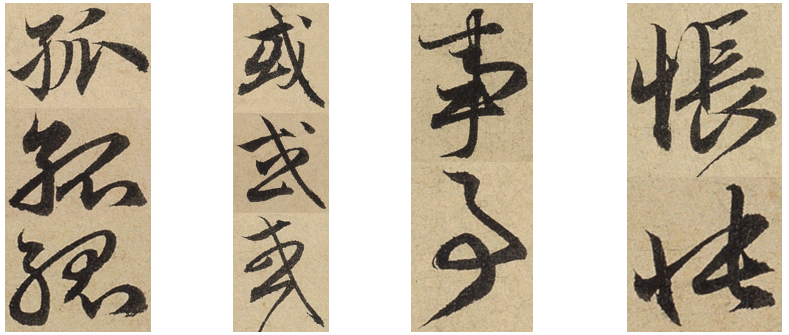 孤孤孤
或或或
事事
悵悵